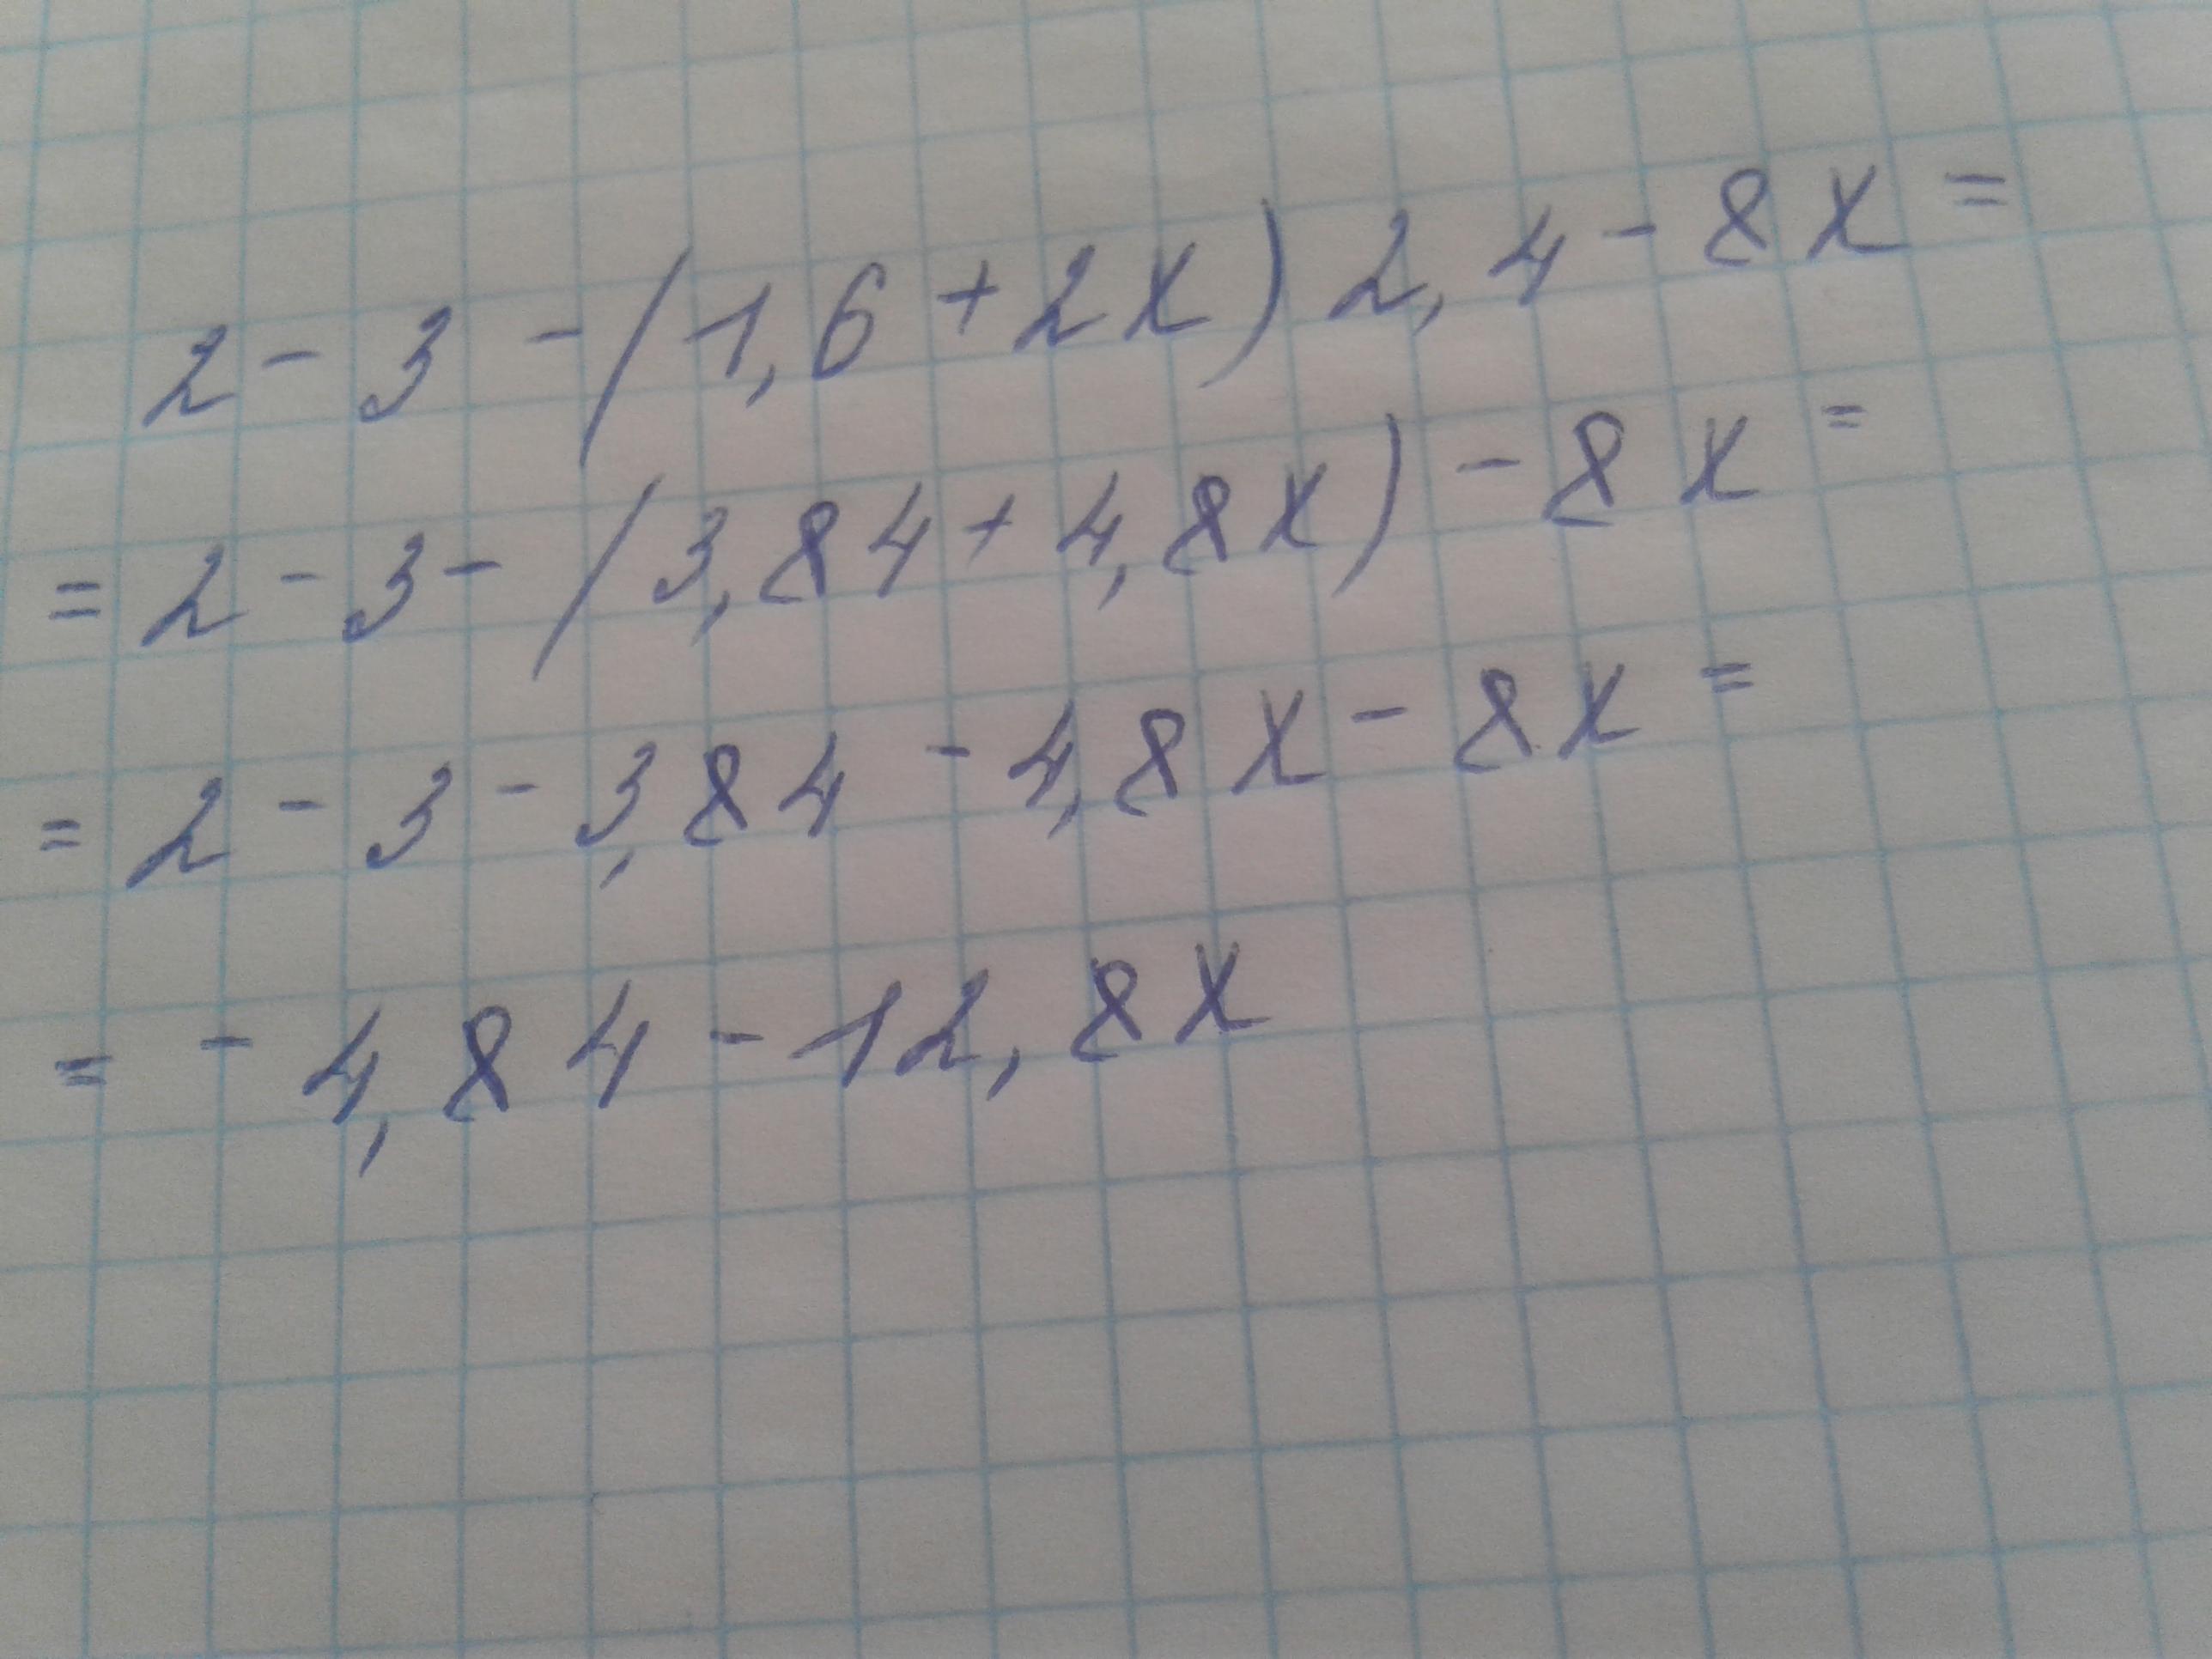 2 - 3 - (1,6 + 2x) 2,4 - 8x =
= 2 - 3 - (3,84 + 4,8x) - 8x =
= 2 - 3 - 3,84 - 4,8x - 8x =
= - 4,84 - 12,8x